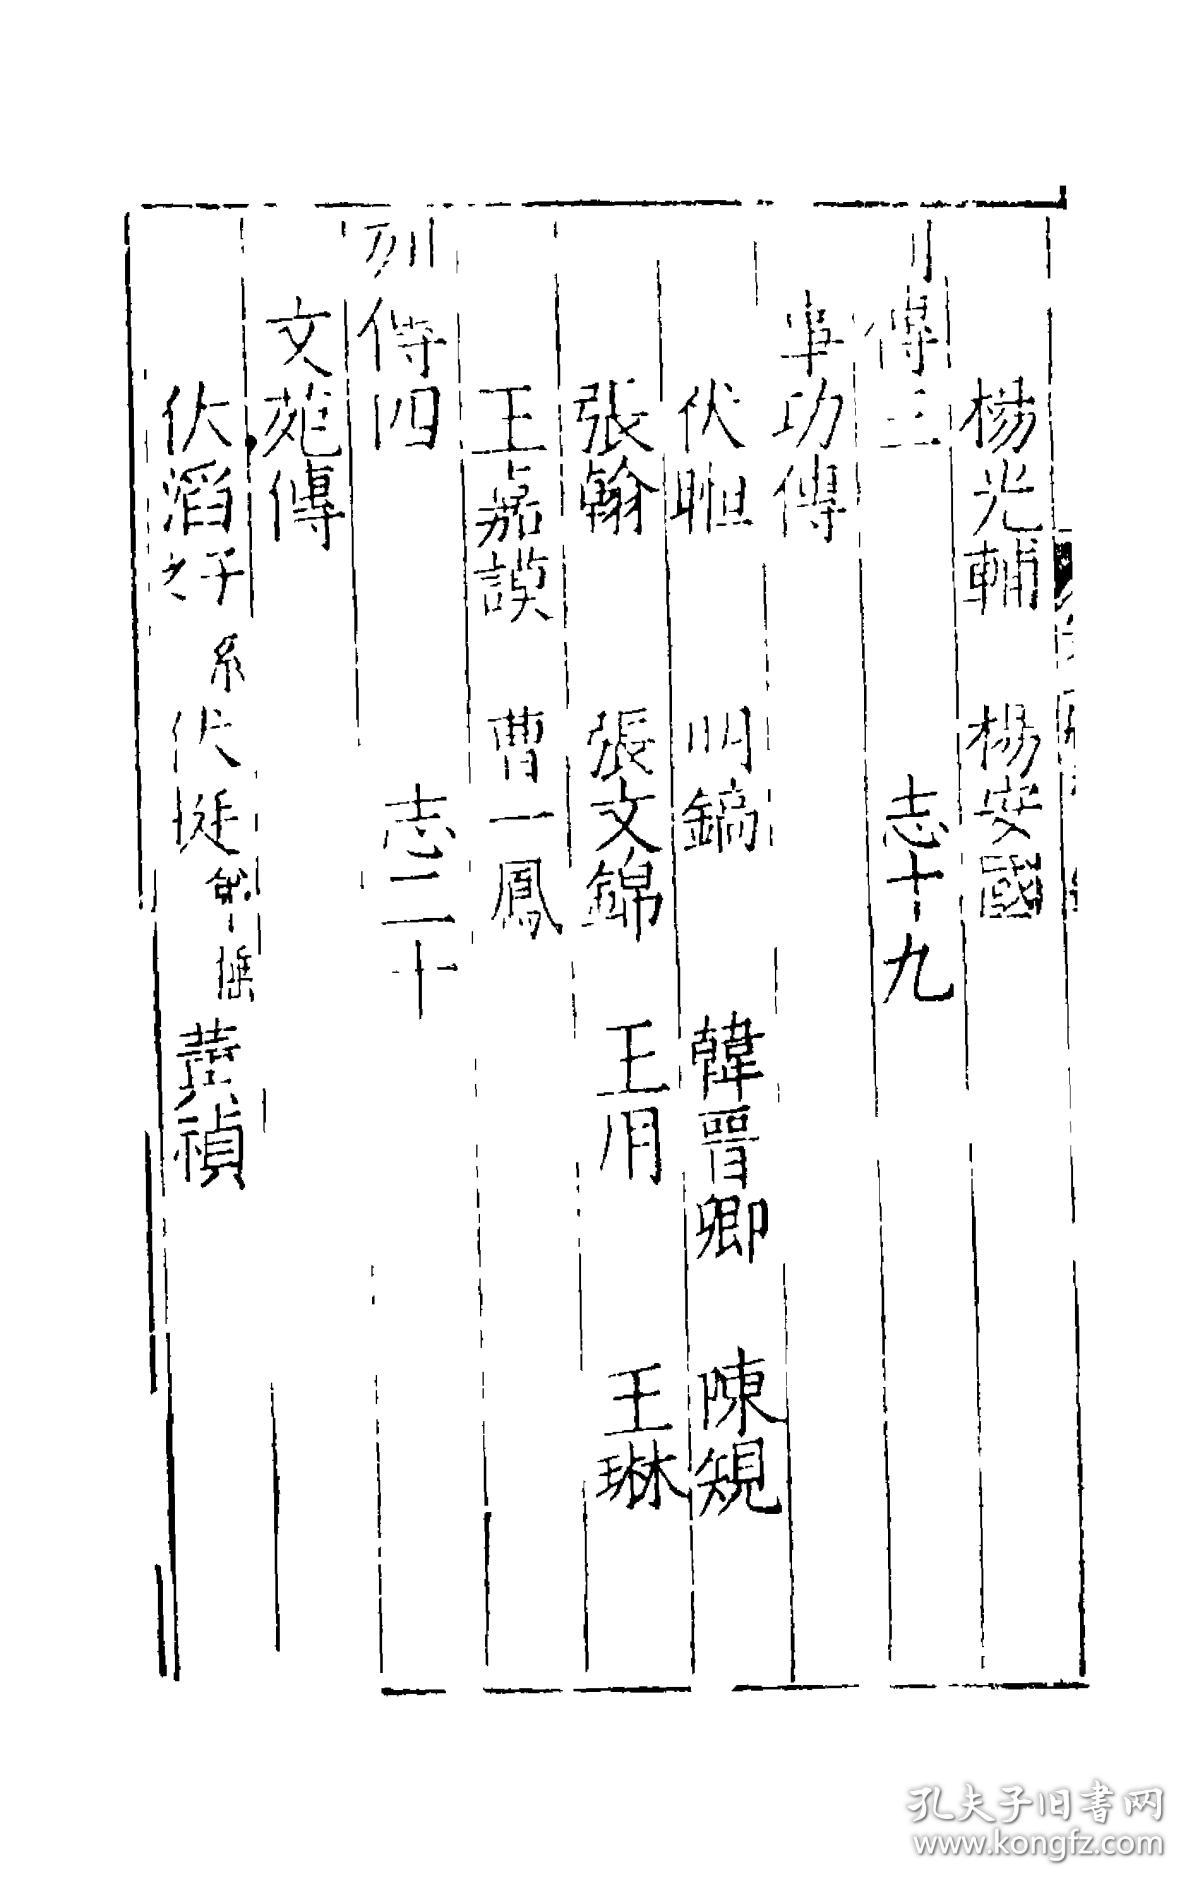 楊光輔 楊安國
列傳三 志十九
事功傳
伏暅 明鎬 韓晉卿 陳規
張翰 張文錦 王用 王琳
王嘉謨 曹一鳳
列傳四 志二十
文苑傳
伏滔 之子系 伏挺 黃禎
孔夫子旧書网
www.kongfz.com